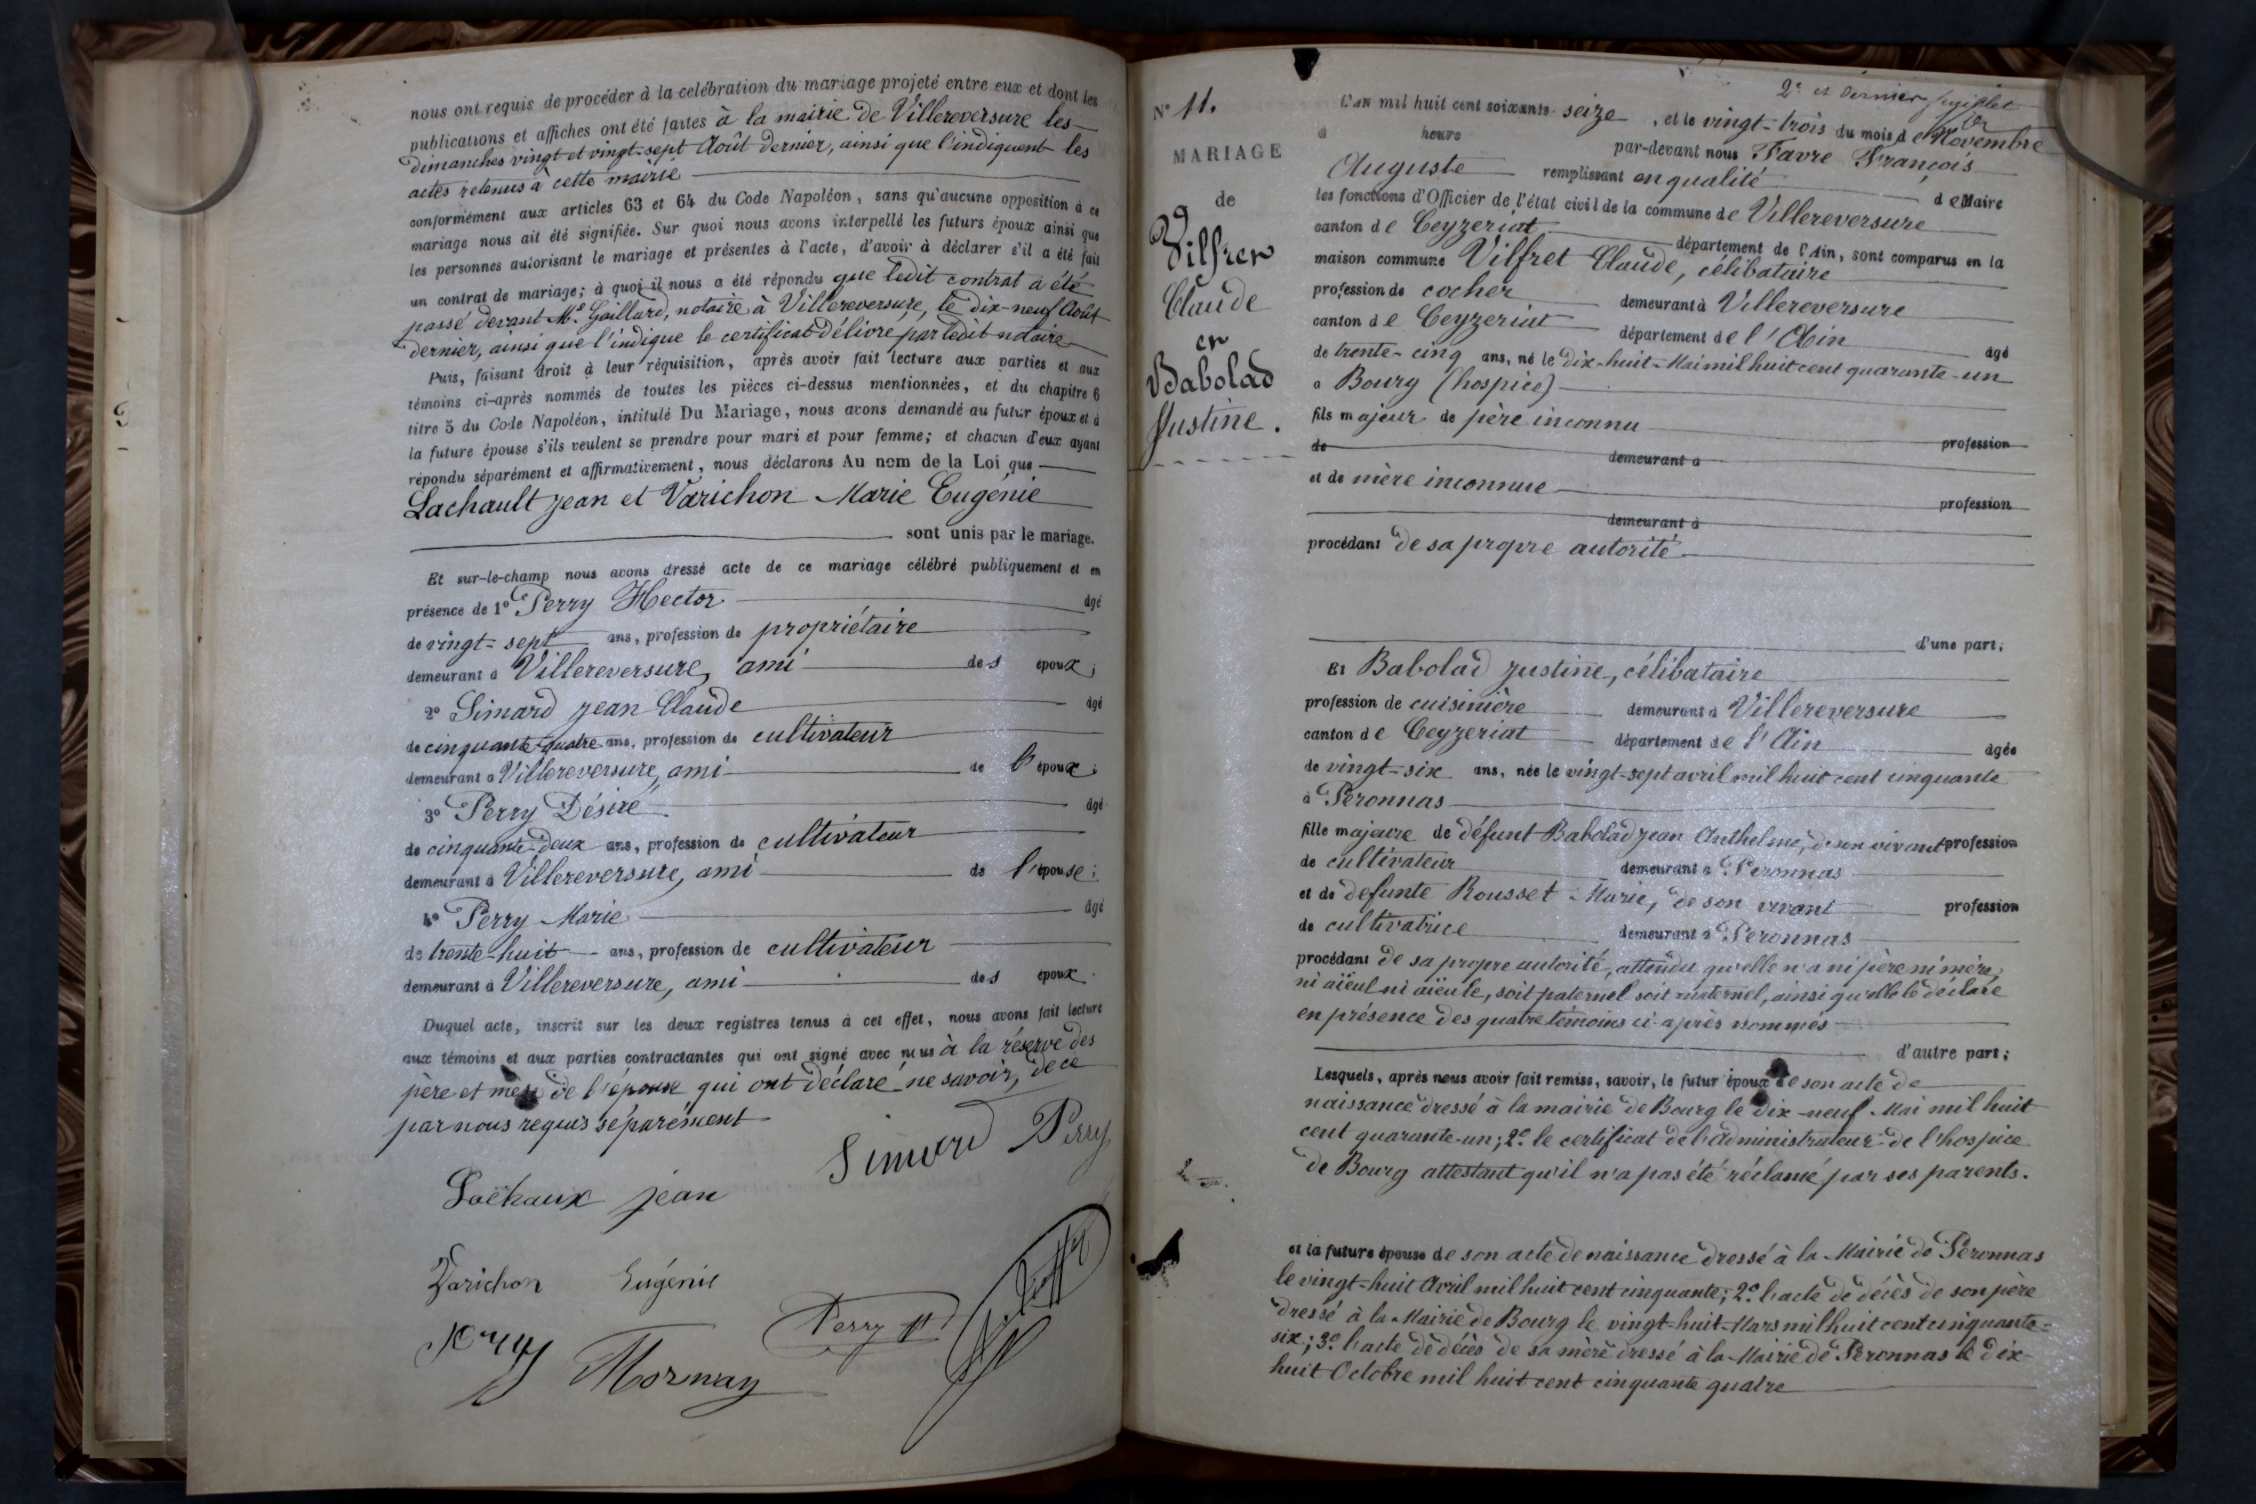 nous ont requis de procéder à la celébration du mariage projeté entre eux et dont les
publications et affiches ont été faites à la mairie de Villereversure les
dimanches vingt et vingt-sept Août dernier, ainsi que l'indiquent les
actes retenus à cette mairie
conformément aux articles 63 et 64 du Code Napoléon, sans qu'aucune opposition à ce
mariage nous ait été signifiée. Sur quoi nous avons interpellé les futurs époux ainsi que
les personnes autorisant le mariage et présentes à l'acte, d'avoir à déclarer s'il a été fait
un contrat de mariage; à quoi il nous a été répondu que ledit contrat a été
passé devant Me Gaillard, notaire à Villereversure, le dix-neuf Août
dernier, ainsi que l'indique le certificat délivré par ledit notaire
Puis, faisant droit à leur réquisition, après avoir fait lecture aux parties et aux
témoins ci-après nommés de toutes les pièces ci-dessus mentionnées, et du chapitre 6
titre 5 du Code Napoléon, intitulé Du Mariage, nous avons demandé au futur époux et à
la future épouse s'ils veulent se prendre pour mari et pour femme; et chacun d'eux ayant
répondu séparément et affirmativement, nous déclarons Au nom de la Loi que
Lachault Jean et Varichon Marie Eugénie
sont unis par le mariage.
Et sur-le-champ nous avons dressé acte de ce mariage célébré publiquement et en
présence de 1° Perry Hector âgé
de vingt-sept ans, profession de propriétaire
demeurant à Villereversure, ami des époux;
2° Simard Jean Claude âgé
de cinquante-quatre ans, profession de cultivateur
demeurant à Villereversure, ami de l'époux;
3° Perry Désiré âgé
de cinquante-deux ans, profession de cultivateur
demeurant à Villereversure, ami de l'épouse;
4° Perry Marie âgé
de trente-huit ans, profession de cultivateur
demeurant à Villereversure, ami des époux.
Duquel acte, inscrit sur les deux registres tenus à cet effet, nous avons fait lecture
aux témoins et aux parties contractantes qui ont signé avec nous à la réserve des
père et mère de l'époux qui ont déclaré ne savoir, de ce
par nous requis séparément
Simard Perry
Lochaux jean
Varichon Eugénie
Perry H
Perry Mornay
2e et dernier feuillet
N° 11.
MARIAGE
de
Vilfret
Claude
et
Babolad
Justine.
L'an mil huit cent soixante-seize, et le vingt-trois du mois de Novembre
à heure par-devant nous Favre François
Auguste remplissant en qualité de Maire
les fonctions d'Officier de l'état civil de la commune de Villereversure
canton de Ceyzeriat département de l'Ain, sont comparus en la
maison commune Vilfret Claude, célibataire
profession de cocher demeurant à Villereversure
canton de Ceyzeriat département de l'Ain âgé
de trente-cinq ans, né le dix-huit Mai mil huit cent quarante-un
à Bourg (hospice)
fils majeur de père inconnu
de demeurant à profession
et de mère inconnue
demeurant à profession
procédant de sa propre autorité
d'une part;
Et Babolad Justine, célibataire
profession de cuisinière demeurant à Villereversure
canton de Ceyzeriat département de l'Ain âgée
de vingt-six ans, née le vingt-sept avril mil huit cent cinquante
à Peronnas
fille majeure de défunt Babolad Jean Anthelme, de son vivant profession
de cultivateur demeurant à Peronnas
et de defunte Rousset Marie, de son vivant profession
de cultivatrice demeurant à Peronnas
procédant de sa propre autorité, attendu qu'elle n'a ni père ni mère,
ni aïeul ni aïeule, soit paternel soit maternel, ainsi qu'elle le déclare
en présence des quatre témoins ci-après nommés
d'autre part;
Lesquels, après nous avoir fait remise, savoir, le futur époux de son acte de
naissance dressé à la mairie de Bourg le dix-neuf Mai mil huit
cent quarante-un; 2° le certificat de l'administrateur de l'hospice
de Bourg attestant qu'il n'a pas été réclamé par ses parents.
et la future épouse de son acte de naissance dressé à la Mairie de Peronnas
le vingt-huit Avril mil huit cent cinquante; 2° l'acte de décès de son père
dressé à la Mairie de Bourg le vingt-huit Mars mil huit cent cinquante-
six; 3° l'acte de décès de sa mère dressé à la Mairie de Peronnas le dix-
huit Octobre mil huit cent cinquante quatre